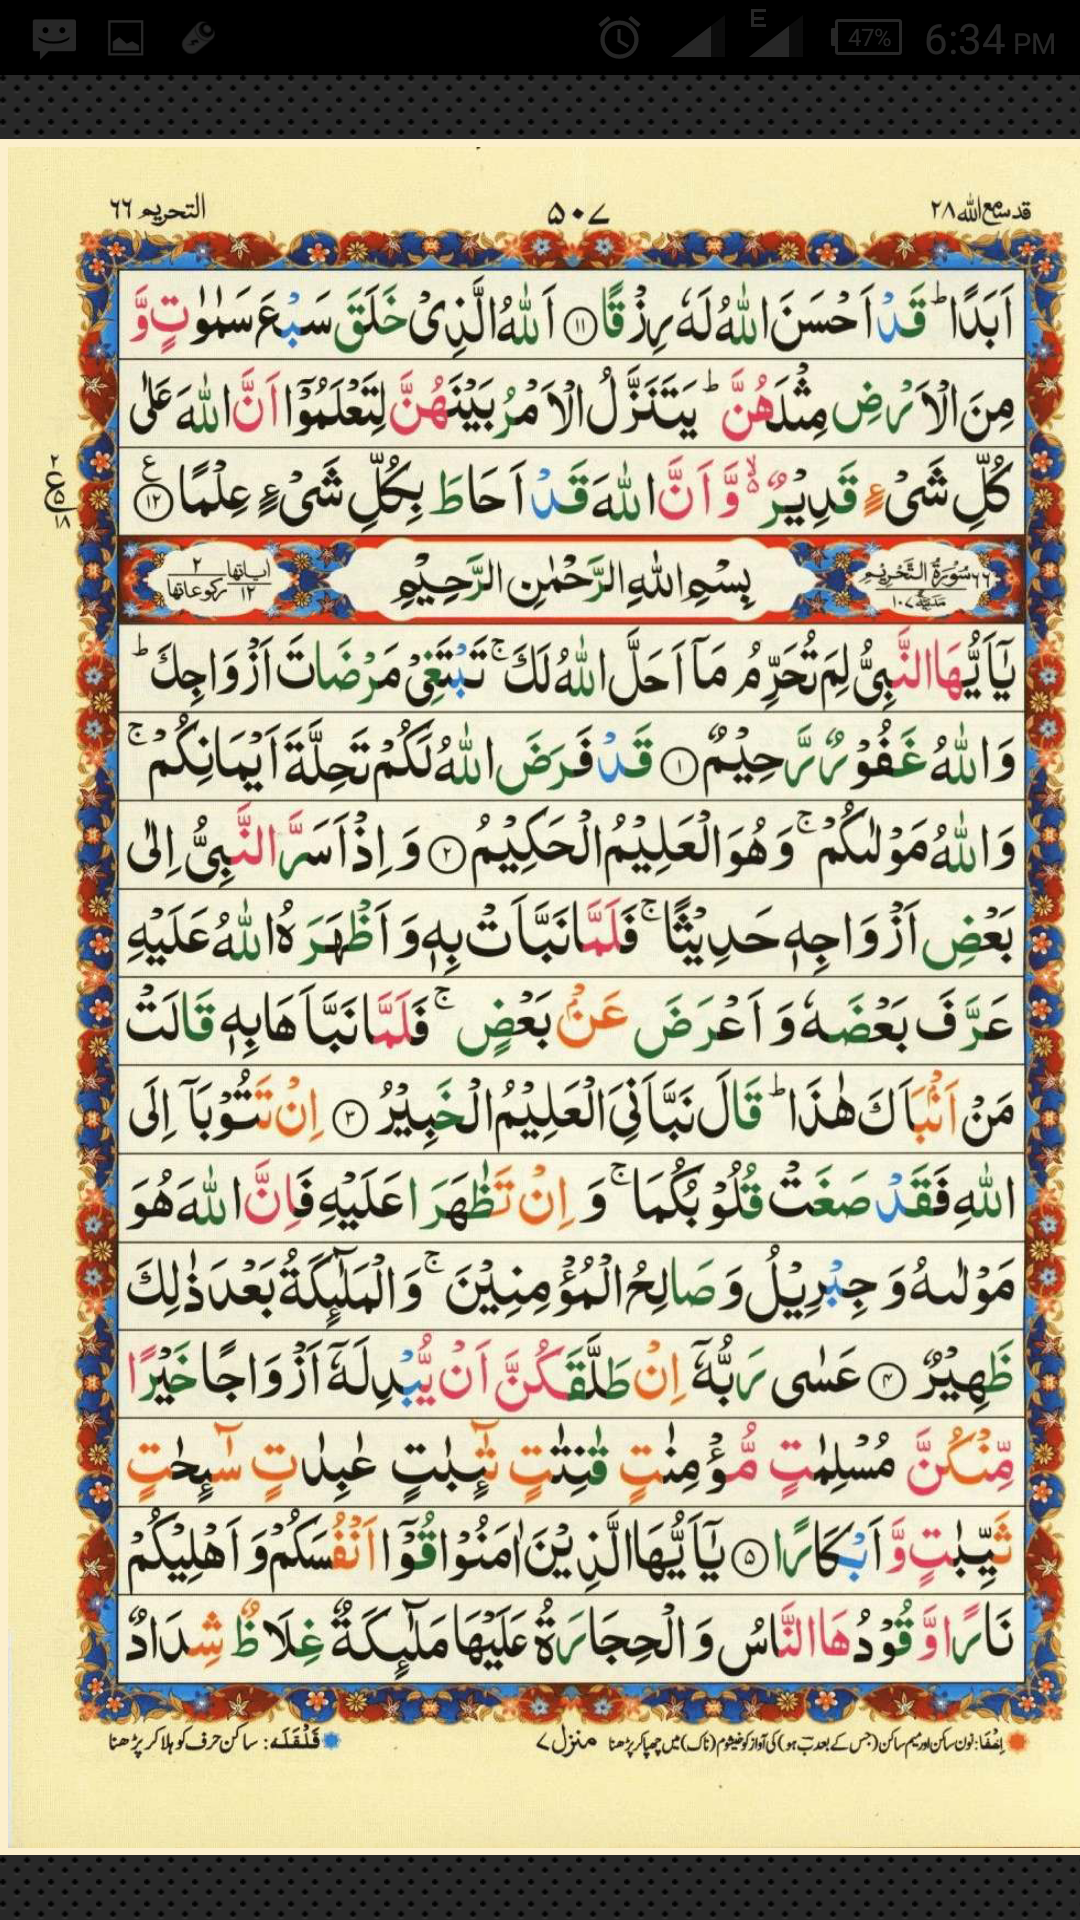 E 47% 6:34 PM
قد سمع الله ٢٨ ۵۰۷ التحریم ٦٦
اَبَدًا ؕ قَدْ اَحْسَنَ اللّٰهُ لَهٗ رِزْقًا ۝۱۱ اَللّٰهُ الَّذِیْ خَلَقَ سَبْعَ سَمٰوٰتٍ وَّ
مِنَ الْاَرْضِ مِثْلَهُنَّ ؕ یَتَنَزَّلُ الْاَمْرُ بَیْنَهُنَّ لِتَعْلَمُوْۤا اَنَّ اللّٰهَ عَلٰی
كُلِّ شَیْءٍ قَدِیْرٌ ۙ۬ وَّ اَنَّ اللّٰهَ قَدْ اَحَاطَ بِكُلِّ شَیْءٍ عِلْمًا ۝۱۲ ع
٢ ع ۵ ١٨
٦٦ سُوْرَةُ التَّحْرِیْمِ مَدَنِیَّةٌ ١٠٧ بِسْمِ اللّٰهِ الرَّحْمٰنِ الرَّحِیْمِ اٰیاتها ١٢ رکوعاتها ٢
یٰۤاَیُّهَا النَّبِیُّ لِمَ تُحَرِّمُ مَاۤ اَحَلَّ اللّٰهُ لَكَ ۚ تَبْتَغِیْ مَرْضَاتَ اَزْوَاجِكَ ؕ
وَ اللّٰهُ غَفُوْرٌ رَّحِیْمٌ ۝۱ قَدْ فَرَضَ اللّٰهُ لَكُمْ تَحِلَّةَ اَیْمَانِكُمْ ۚ
وَ اللّٰهُ مَوْلٰىكُمْ ۚ وَ هُوَ الْعَلِیْمُ الْحَكِیْمُ ۝۲ وَ اِذْ اَسَرَّ النَّبِیُّ اِلٰی
بَعْضِ اَزْوَاجِهٖ حَدِیْثًا ۚ فَلَمَّا نَبَّاَتْ بِهٖ وَ اَظْهَرَهُ اللّٰهُ عَلَیْهِ
عَرَّفَ بَعْضَهٗ وَ اَعْرَضَ عَنْۢ بَعْضٍ ۚ فَلَمَّا نَبَّاَهَا بِهٖ قَالَتْ
مَنْ اَنْۢبَاَكَ هٰذَا ؕ قَالَ نَبَّاَنِیَ الْعَلِیْمُ الْخَبِیْرُ ۝۳ اِنْ تَتُوْبَاۤ اِلَی
اللّٰهِ فَقَدْ صَغَتْ قُلُوْبُكُمَا ۚ وَ اِنْ تَظٰهَرَا عَلَیْهِ فَاِنَّ اللّٰهَ هُوَ
مَوْلٰىهُ وَ جِبْرِیْلُ وَ صَالِحُ الْمُؤْمِنِیْنَ ۚ وَ الْمَلٰٓىِٕكَةُ بَعْدَ ذٰلِكَ
ظَهِیْرٌ ۝۴ عَسٰی رَبُّهٗۤ اِنْ طَلَّقَكُنَّ اَنْ یُّبْدِلَهٗۤ اَزْوَاجًا خَیْرًا
مِّنْكُنَّ مُسْلِمٰتٍ مُّؤْمِنٰتٍ قٰنِتٰتٍ تٰٓىِٕبٰتٍ عٰبِدٰتٍ سٰٓىِٕحٰتٍ
ثَیِّبٰتٍ وَّ اَبْكَارًا ۝۵ یٰۤاَیُّهَا الَّذِیْنَ اٰمَنُوْا قُوْۤا اَنْفُسَكُمْ وَ اَهْلِیْكُمْ
نَارًا وَّ قُوْدُهَا النَّاسُ وَ الْحِجَارَةُ عَلَیْهَا مَلٰٓىِٕكَةٌ غِلَاظٌ شِدَادٌ
اِخْفَا: نون ساکن اور میم ساکن (جس کے بعد ب ہو) کی آواز کو خیشوم (ناک) میں چھپا کر پڑھنا منزل ٧ قَلْقَلَه: ساکن حرف کو ہلا کر پڑھنا